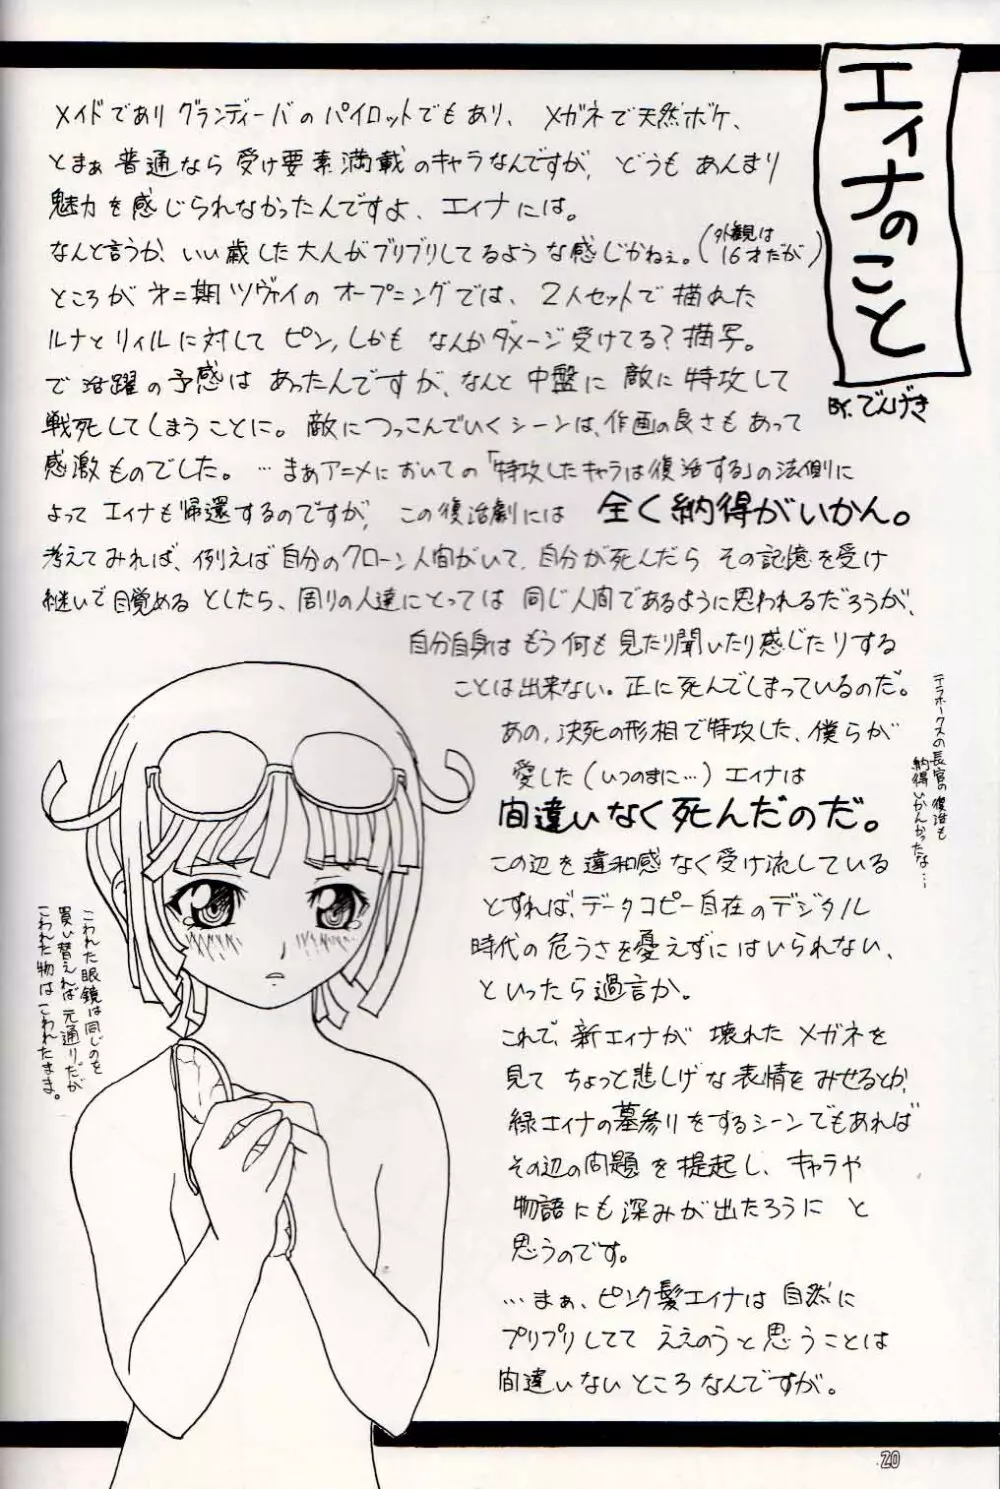 エィナのこと
BY.でんげき
メイドであり グランディーバの パイロットでもあり、 メガネで天然ボケ、
とまぁ 普通なら 受け要素満載のキャラなんですが、どうも あんまり
魅力を感じられなかったんですよ、エィナには。
なんと言うか、いい歳した大人がブリブリしてるような感じかねぇ。(外観は16才だが)
ところが 第二期ツヴァイの オープニングでは、2人セットで 描れた
ルナとリィルに対して ピン、しかも なんかダメージ受けてる?描写。
で 活躍の予感は あったんですが、なんと 中盤に 敵に 特攻して
戦死してしまうことに。敵につっこんでいくシーンは、作画の良さも あって
感激ものでした。…まぁアニメにおいての「特攻したキャラは復活する」の法側に
よって エィナも帰還するのですが、この復活劇には 全く納得がいかん。
考えてみれば、例えば自分のクローン人間がいて、自分が死んだら その記憶を受け
継いで目覚める としたら、周りの人達にとっては 同じ人間であるように思われるだろうが、
自分自身は もう 何も 見たり聞いたり感じたりする
ことは出来ない。正に死んでしまっているのだ。
あの、決死の形相で特攻した、僕らが
愛した(いつのまに…)エィナは
間違いなく死んだのだ。
この辺を違和感なく受け流している
とすれば、データコピー自在のデジタル
時代の危うさを憂えずにはいられない、
といったら過言か。
これで、新エィナが 壊れた メガネを
見て ちょっと悲しげな表情をみせるとか、
緑エィナの墓参りをするシーンでもあれば
その辺の問題を提起し、キャラや
物語にも深みが出たろうに と
思うのです。
…まぁ、ピンク髪エィナは 自然に
プリプリしてて ええのうと思うことは
間違いないところなんですが。
テラホークスの長官の復活も
納得いかんかったな…
こわれた眼鏡は同じのを
買い替えれば元通りだが
こわれた物はこわれたまま。
20